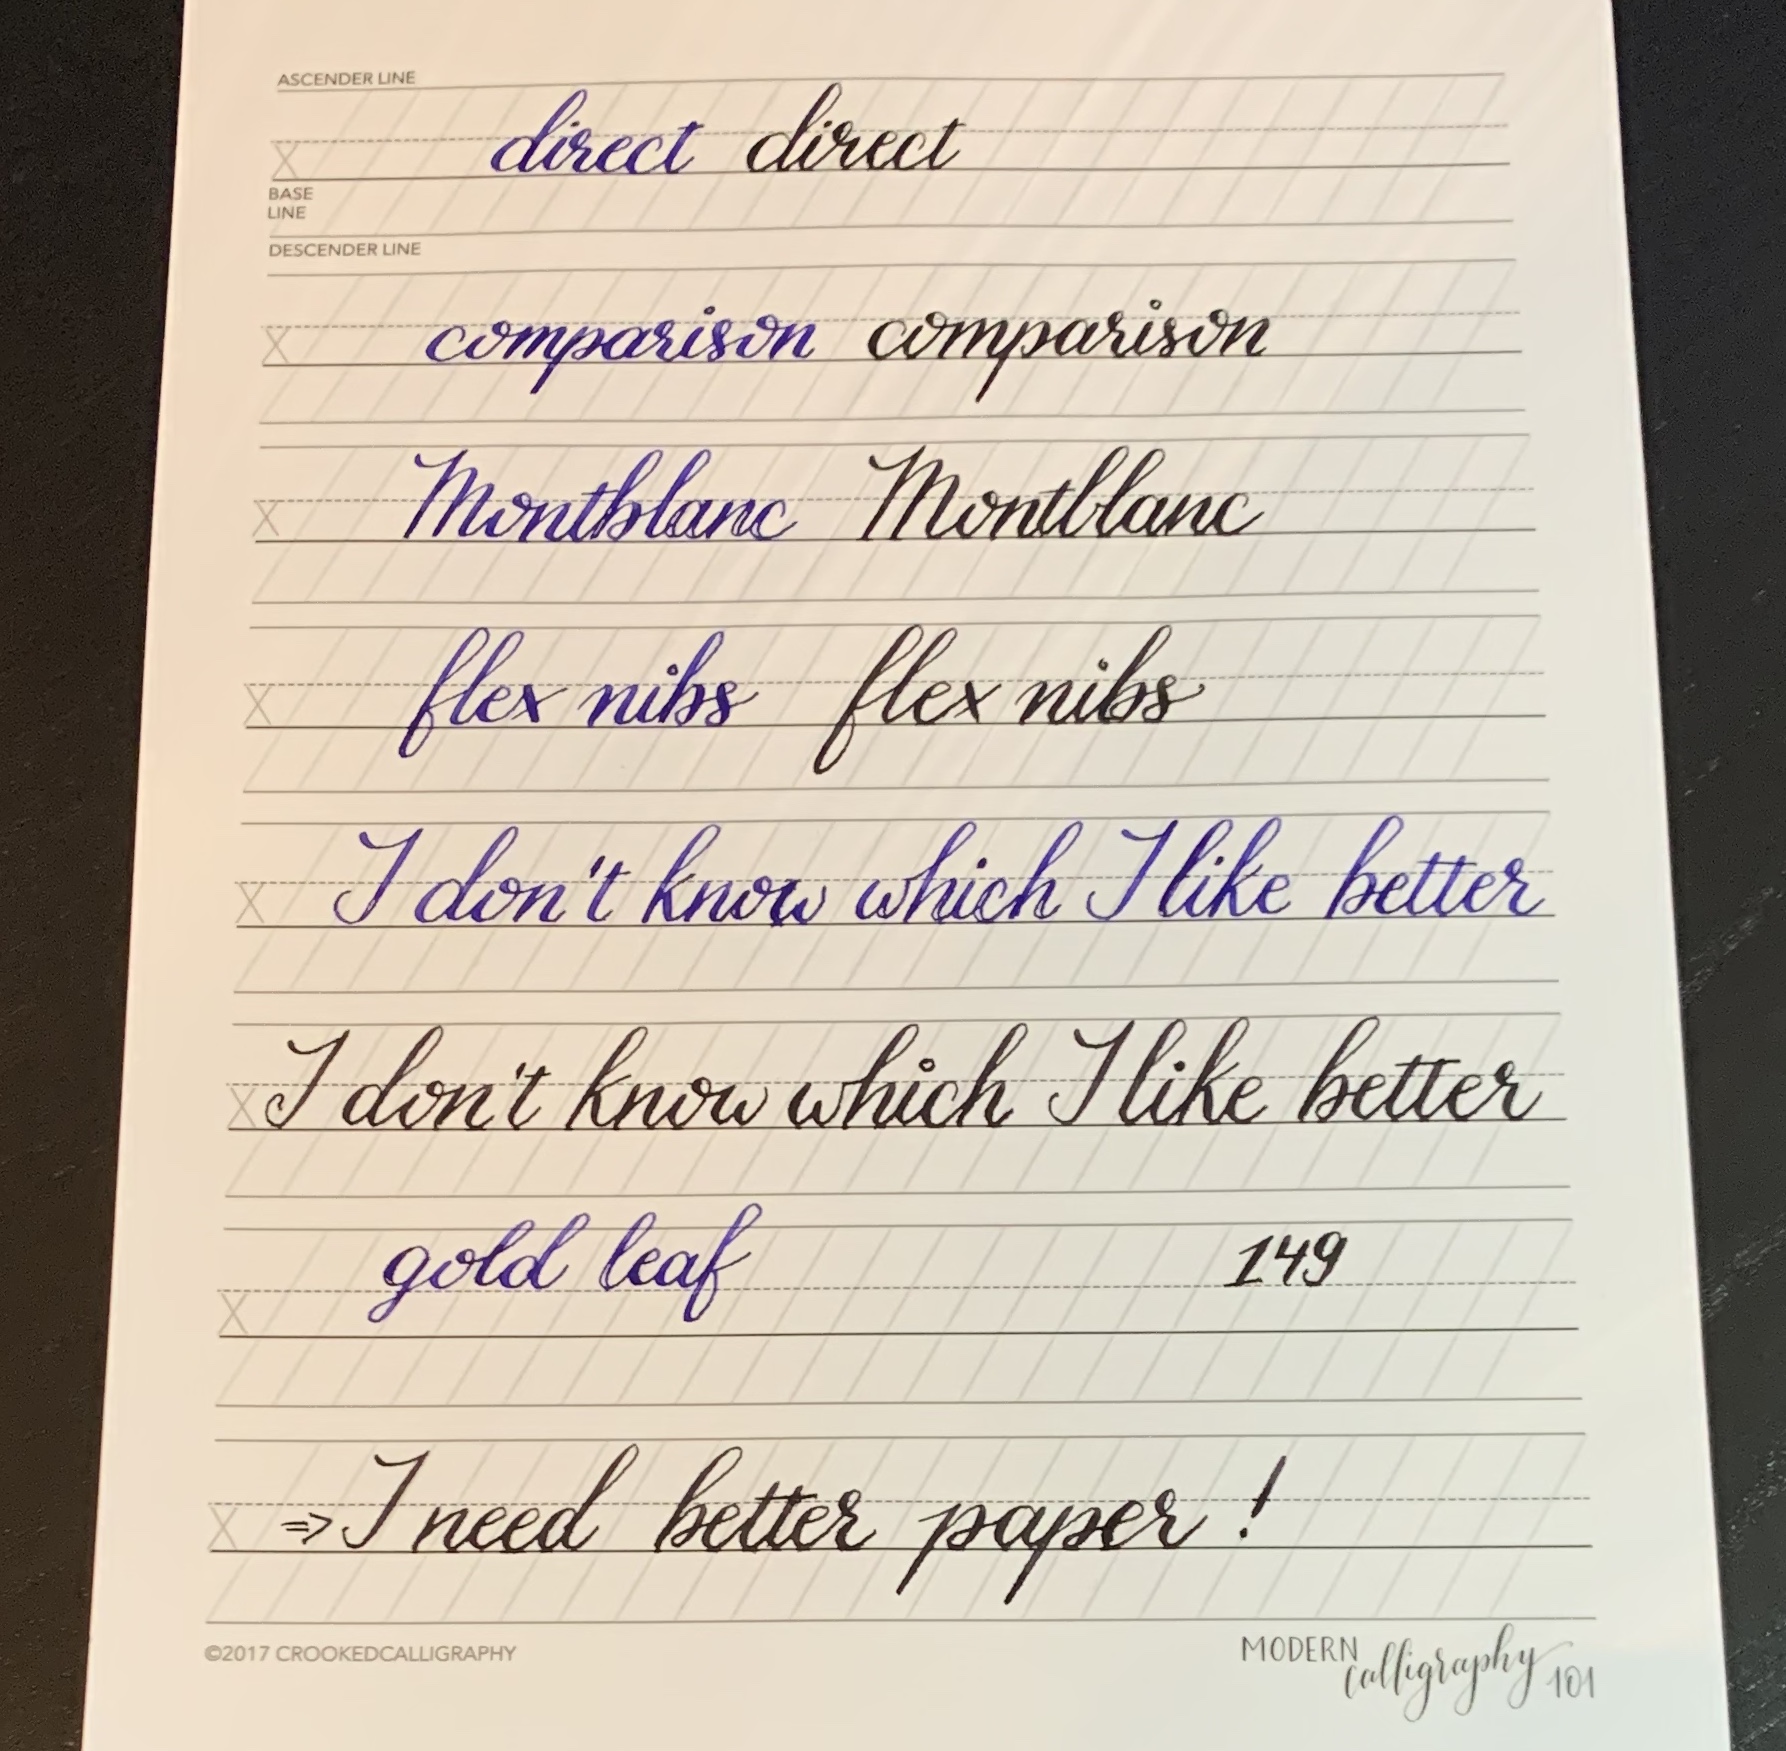 ASCENDER LINE
direct direct
X
BASE
LINE
DESCENDER LINE
comparison comparison
X
Montblanc Montblanc
X
flex nibs flex nibs
X
I don't know which I like better
X
I don't know which I like better
X
gold leaf 149
X
⇒ I need better paper!
X
©2017 CROOKEDCALLIGRAPHY
MODERN calligraphy 101